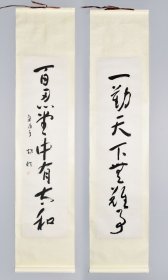 一勤天下無難事
百忍堂中有太和